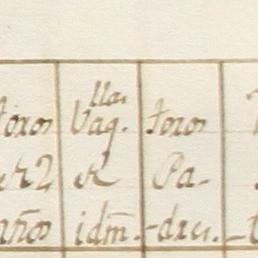 toros Vaq.llas toros
de 2 de Pa-
años idm̃. -dres.